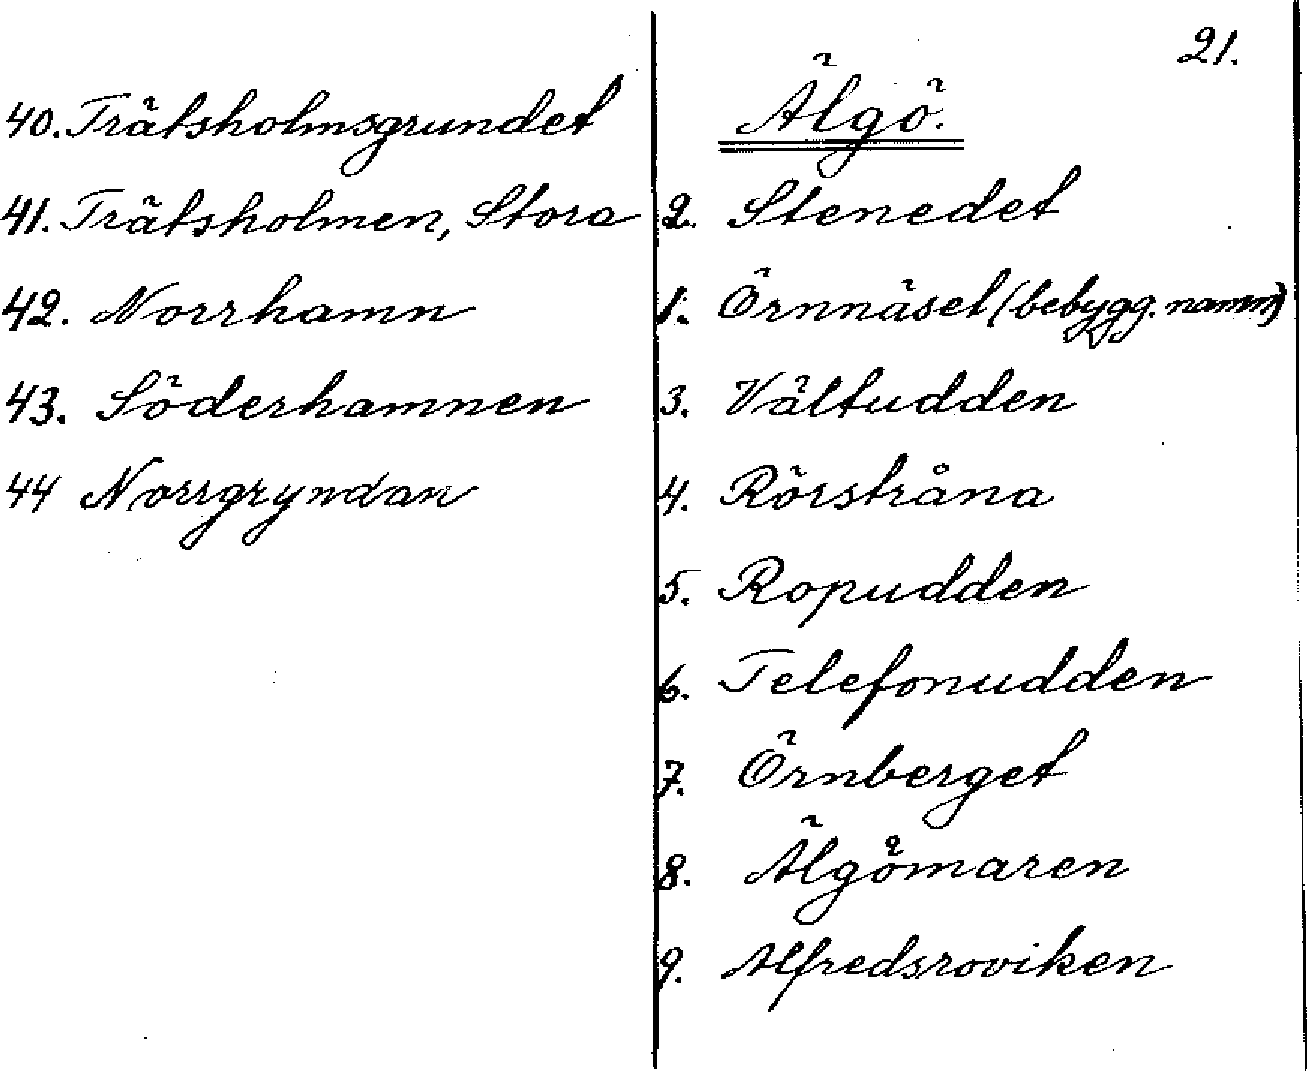 40. Trätsholmsgrundet
41. Trätsholmen, Stora
42. Norrhamn
43. Söderhamnen
44 Norrgryndan
21.
Älgö.
2. Stenedet
1. Örnnäset (bebygg. namn)
3. Vältudden
4. Rörstråna
5. Ropudden
6. Telefonudden
7. Örnberget
8. Älgömaren
9. Alfredsroviken